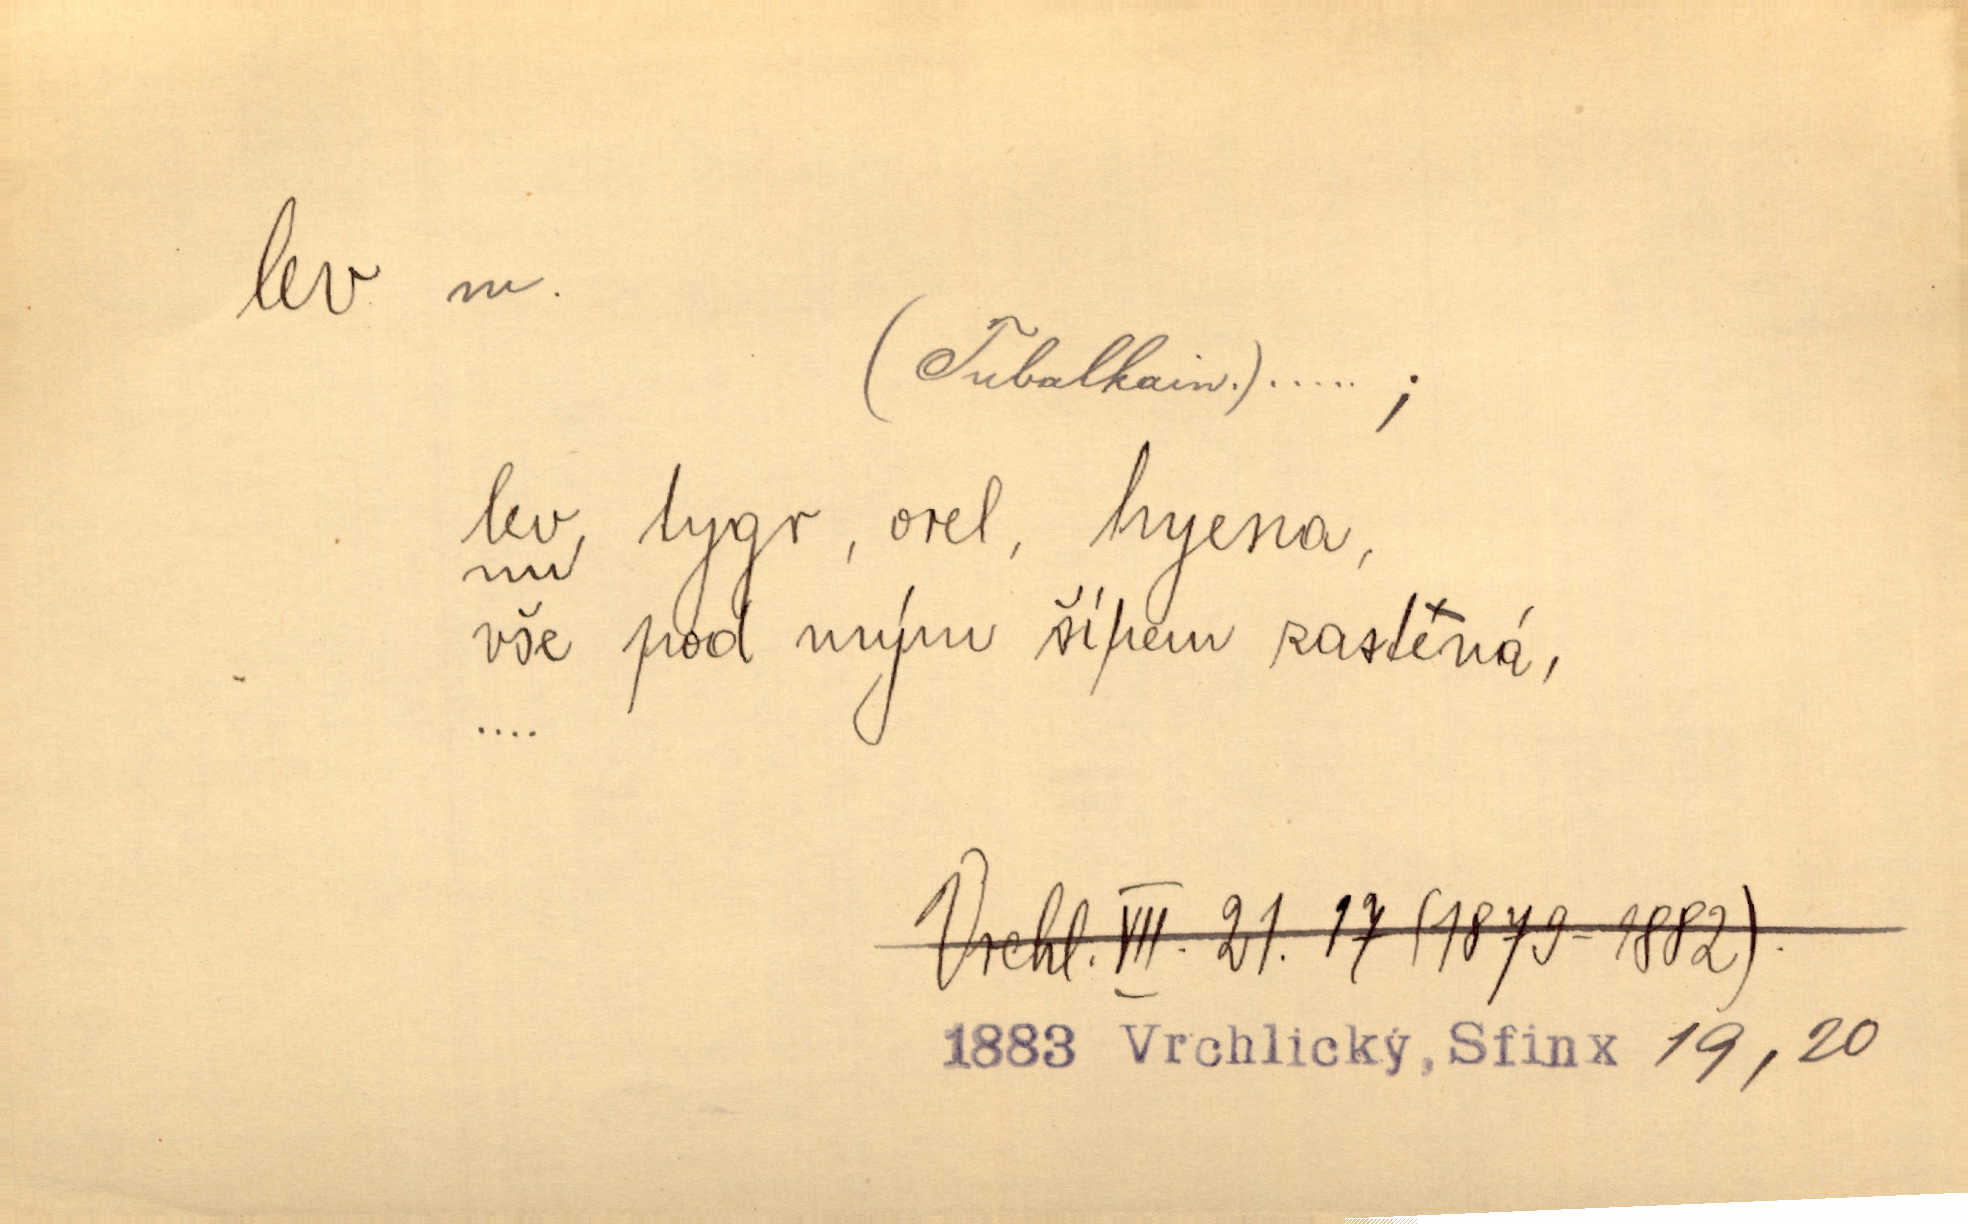 lev m.
(Tubalkain.)..... ;
lev, tygr, orel, hyena,
vše pod mým šípem zastená,
....
Vrchl. VII. 21. 17 (1879-1882).
1883 Vrchlický, Sfinx 19, 20